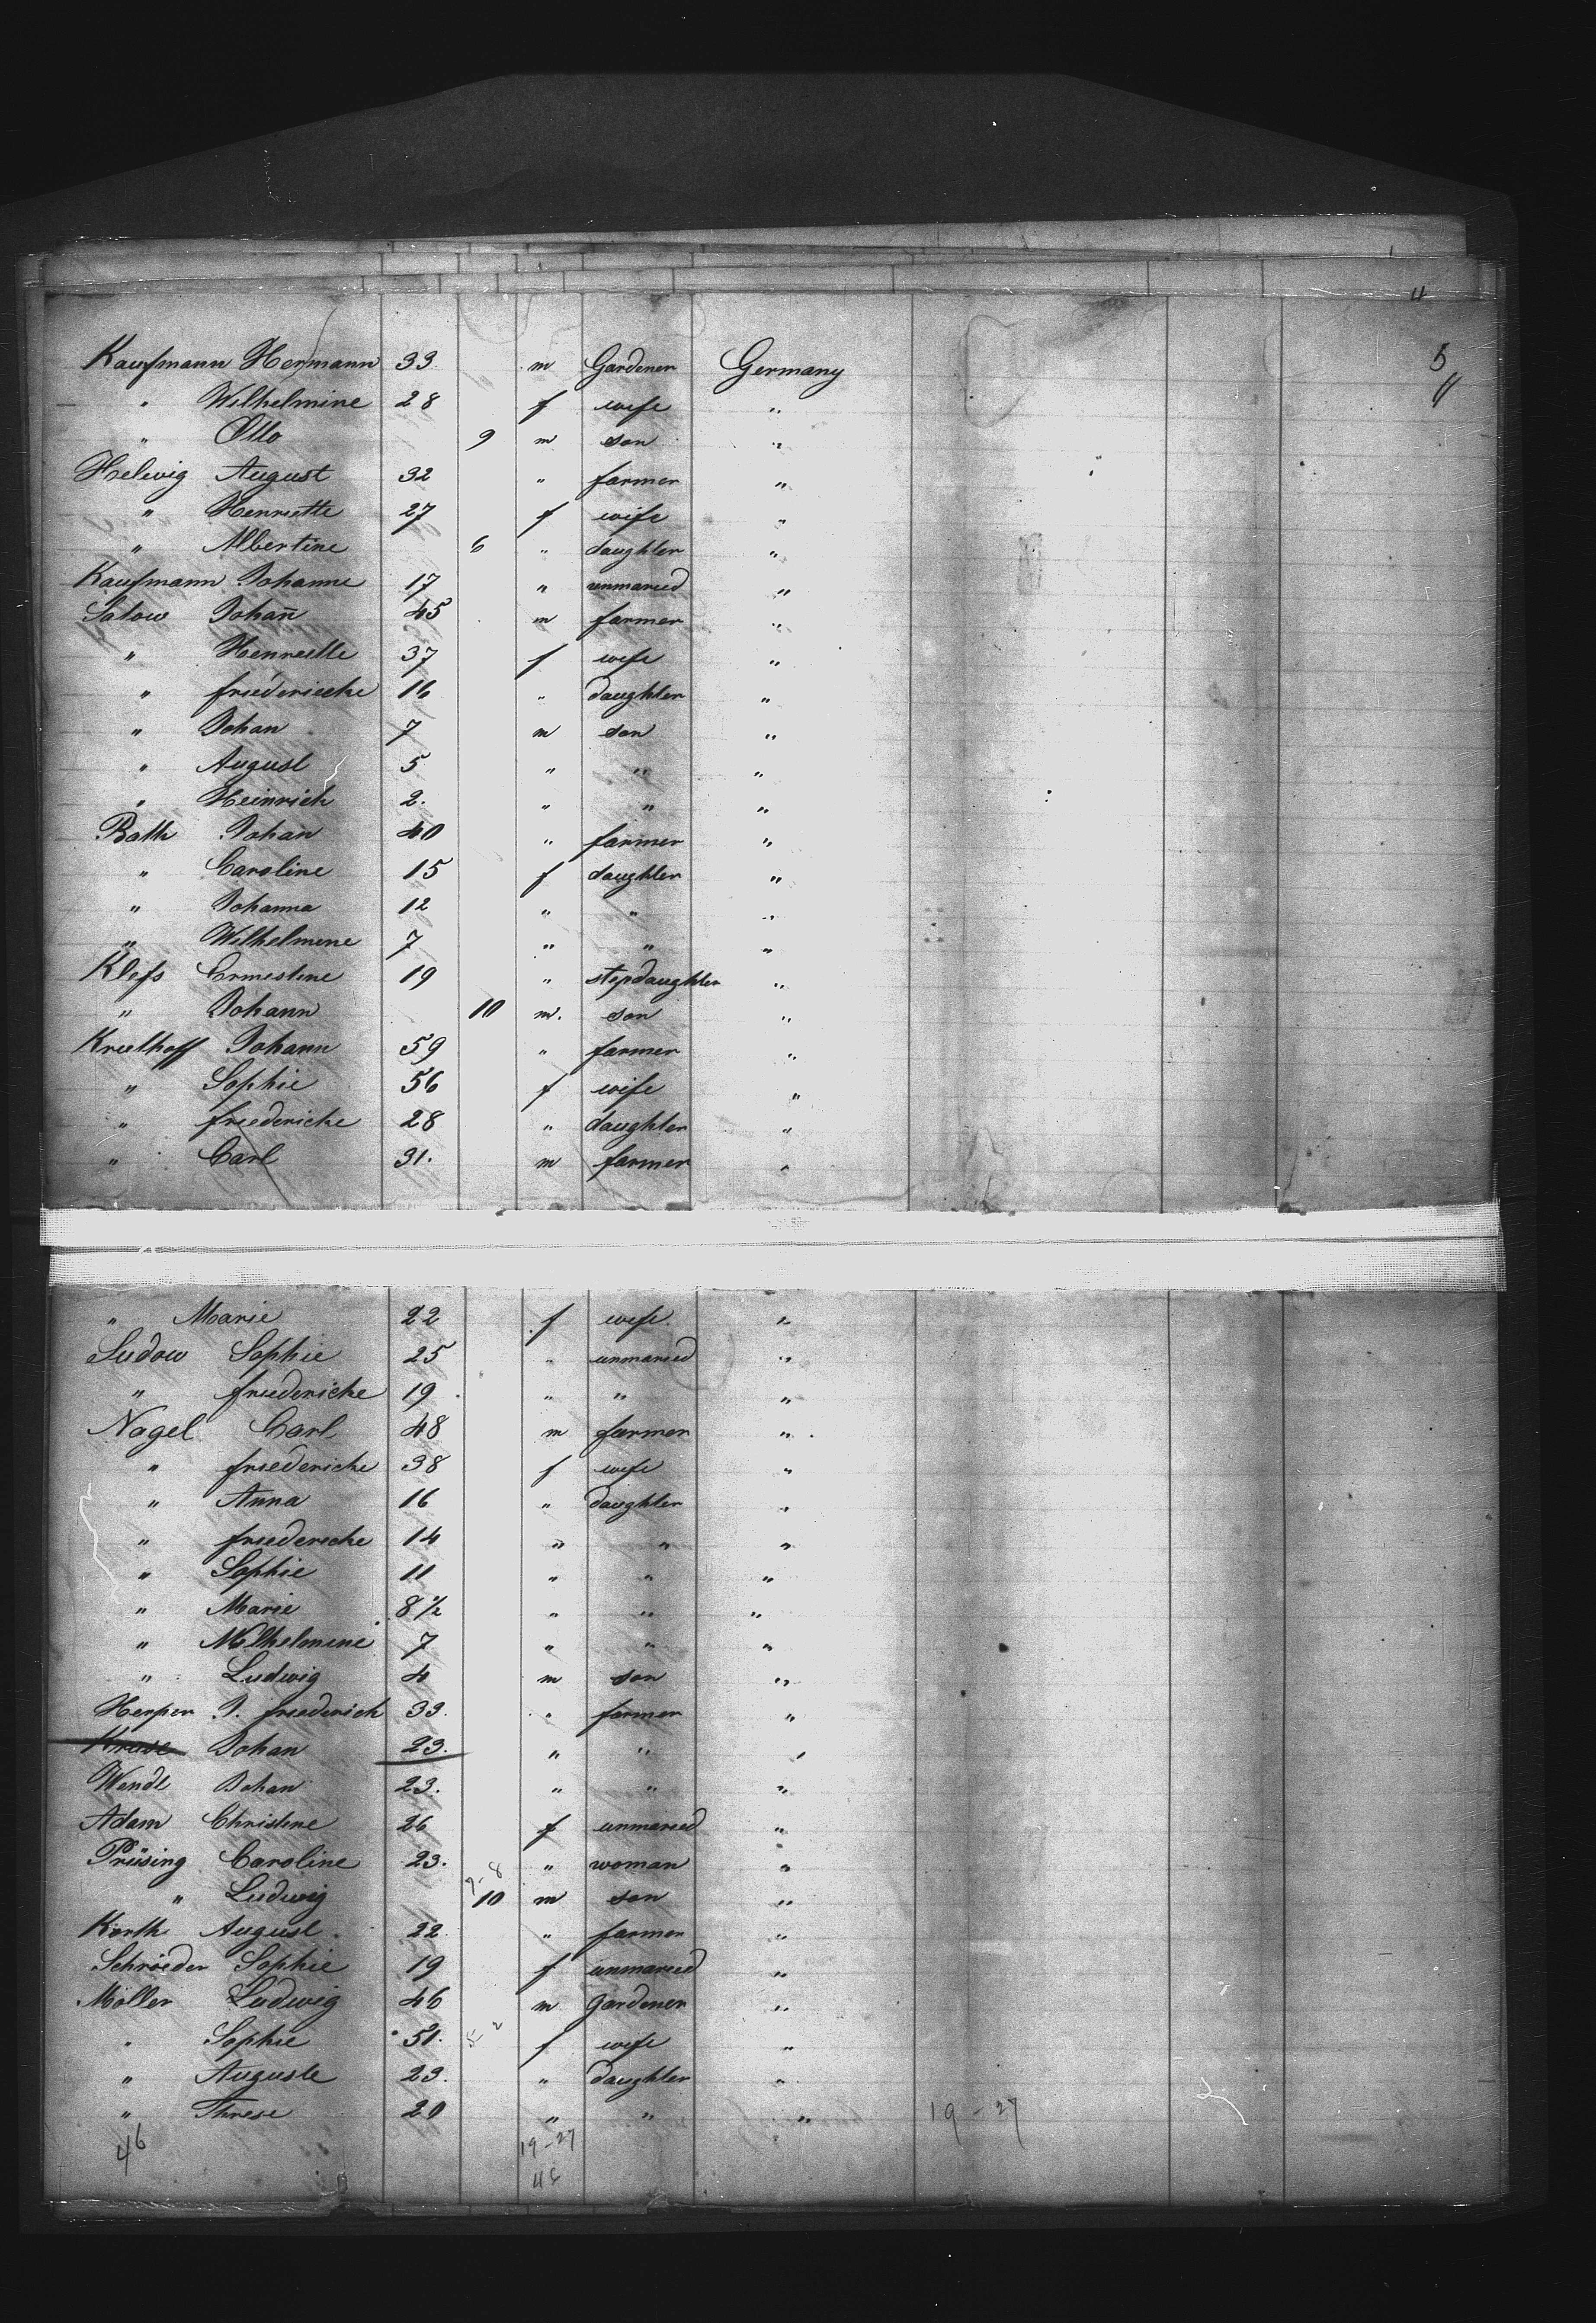 11
5
Kaufmann Hermann 33 m Gardener Germany
" Wilhelmine 28 f wife "
" Otto 9 m son "
Helwig August 32 " farmer "
" Henriette 27 f wife "
" Albertine 6 " daughter "
Kaufmann Johanne 17 " unmaried "
Salow Johan̄ 45 m farmer "
" Henriette 37 f wife "
" friederiecke 16 " daughter "
" Johan 7 m son "
" August 5 " " "
" Heinrich 2. " " "
Bath Johan 40 " farmer "
" Caroline 15 f daughter "
" Johanna 12 " " "
" Wilhelmine 7 " " "
Klefs Ernestine 19 " stepdaughter "
" Johann 10 m. son "
Johann 59 " farmer "
" Sophie 56 f wife "
" friedericke 28 " daughter "
" Carl 31. m farmer "
" Marie 22 f wife "
Ludow Sophie 25 " unmaried "
" friedericke 19 " " "
Nagel Carl 48 m farmer "
" friedericke 38 f wife "
" Anna 16 " daughter "
" friedericke 14 " " "
" Sophie 11 " " "
" Marie 8 1/2 " " "
" Wilhelmine 7 " " "
" Ludwig 4 m son "
Herper J. friederich 33. " farmer "
Kruse Johan 23. " " "
Wendt Johan 23. " " "
Adam Christine 26 f unmaried "
Prüsing Caroline 23. " woman "
" Ludwig 10 m son "
Korth August 22 " farmer "
Schröeder Sophie 19 f unmaried "
Möller Ludwig 46 m gardener "
" Sophie 51. f wife "
" Auguste 23. " daughter "
" Threse 20 " " " 19-27
46 19-27
46